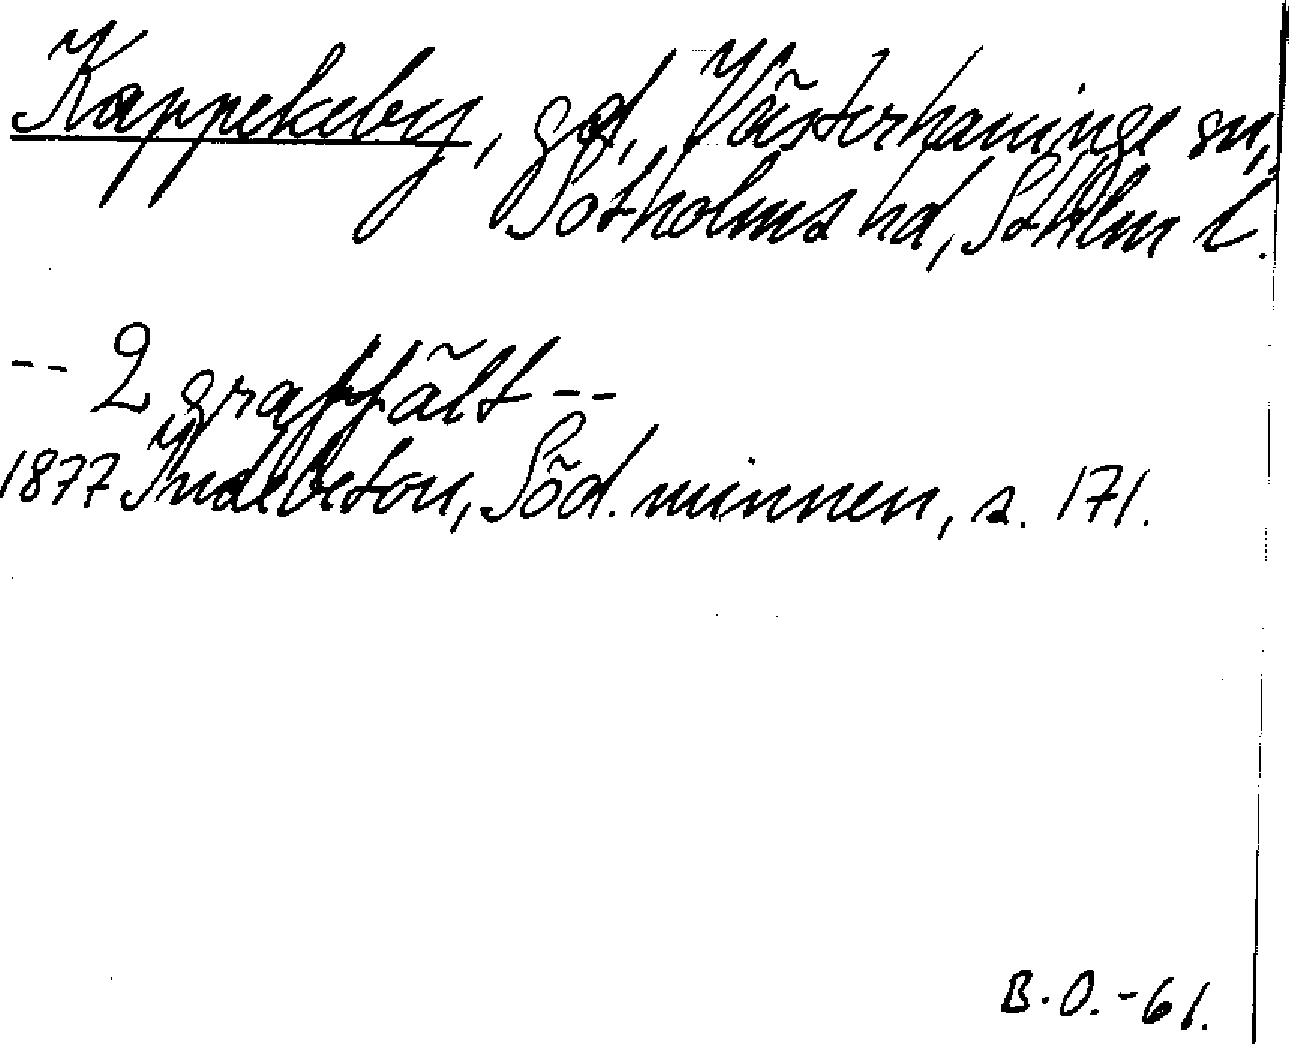 Kappekeby, gd, Västerhaninge sn,
Sotholms hd, Sthlm l.
-- 2 graffält --
1877 Indebetou, Söd. minnen, s. 171.
B.O.-61.